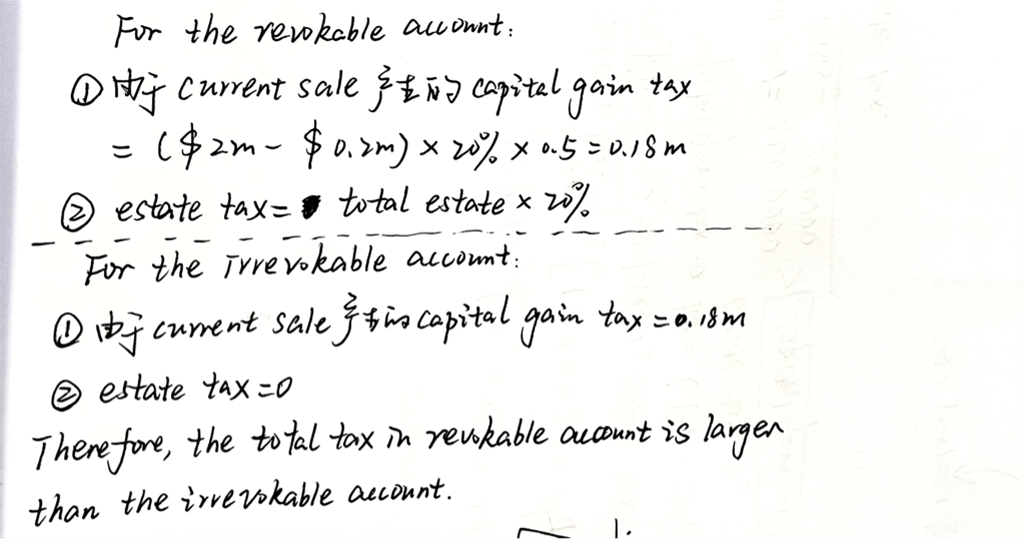 For the revokable account:
① 由于 current sale 产生的 capital gain tax
= ($2m - $0.2m) × 20% × 0.5 = 0.18m
② estate tax = total estate × 20%
For the irrevokable account:
① 由于 current sale 产生的 capital gain tax = 0.18m
② estate tax = 0
Therefore, the total tax in revokable account is larger
than the irrevokable account.